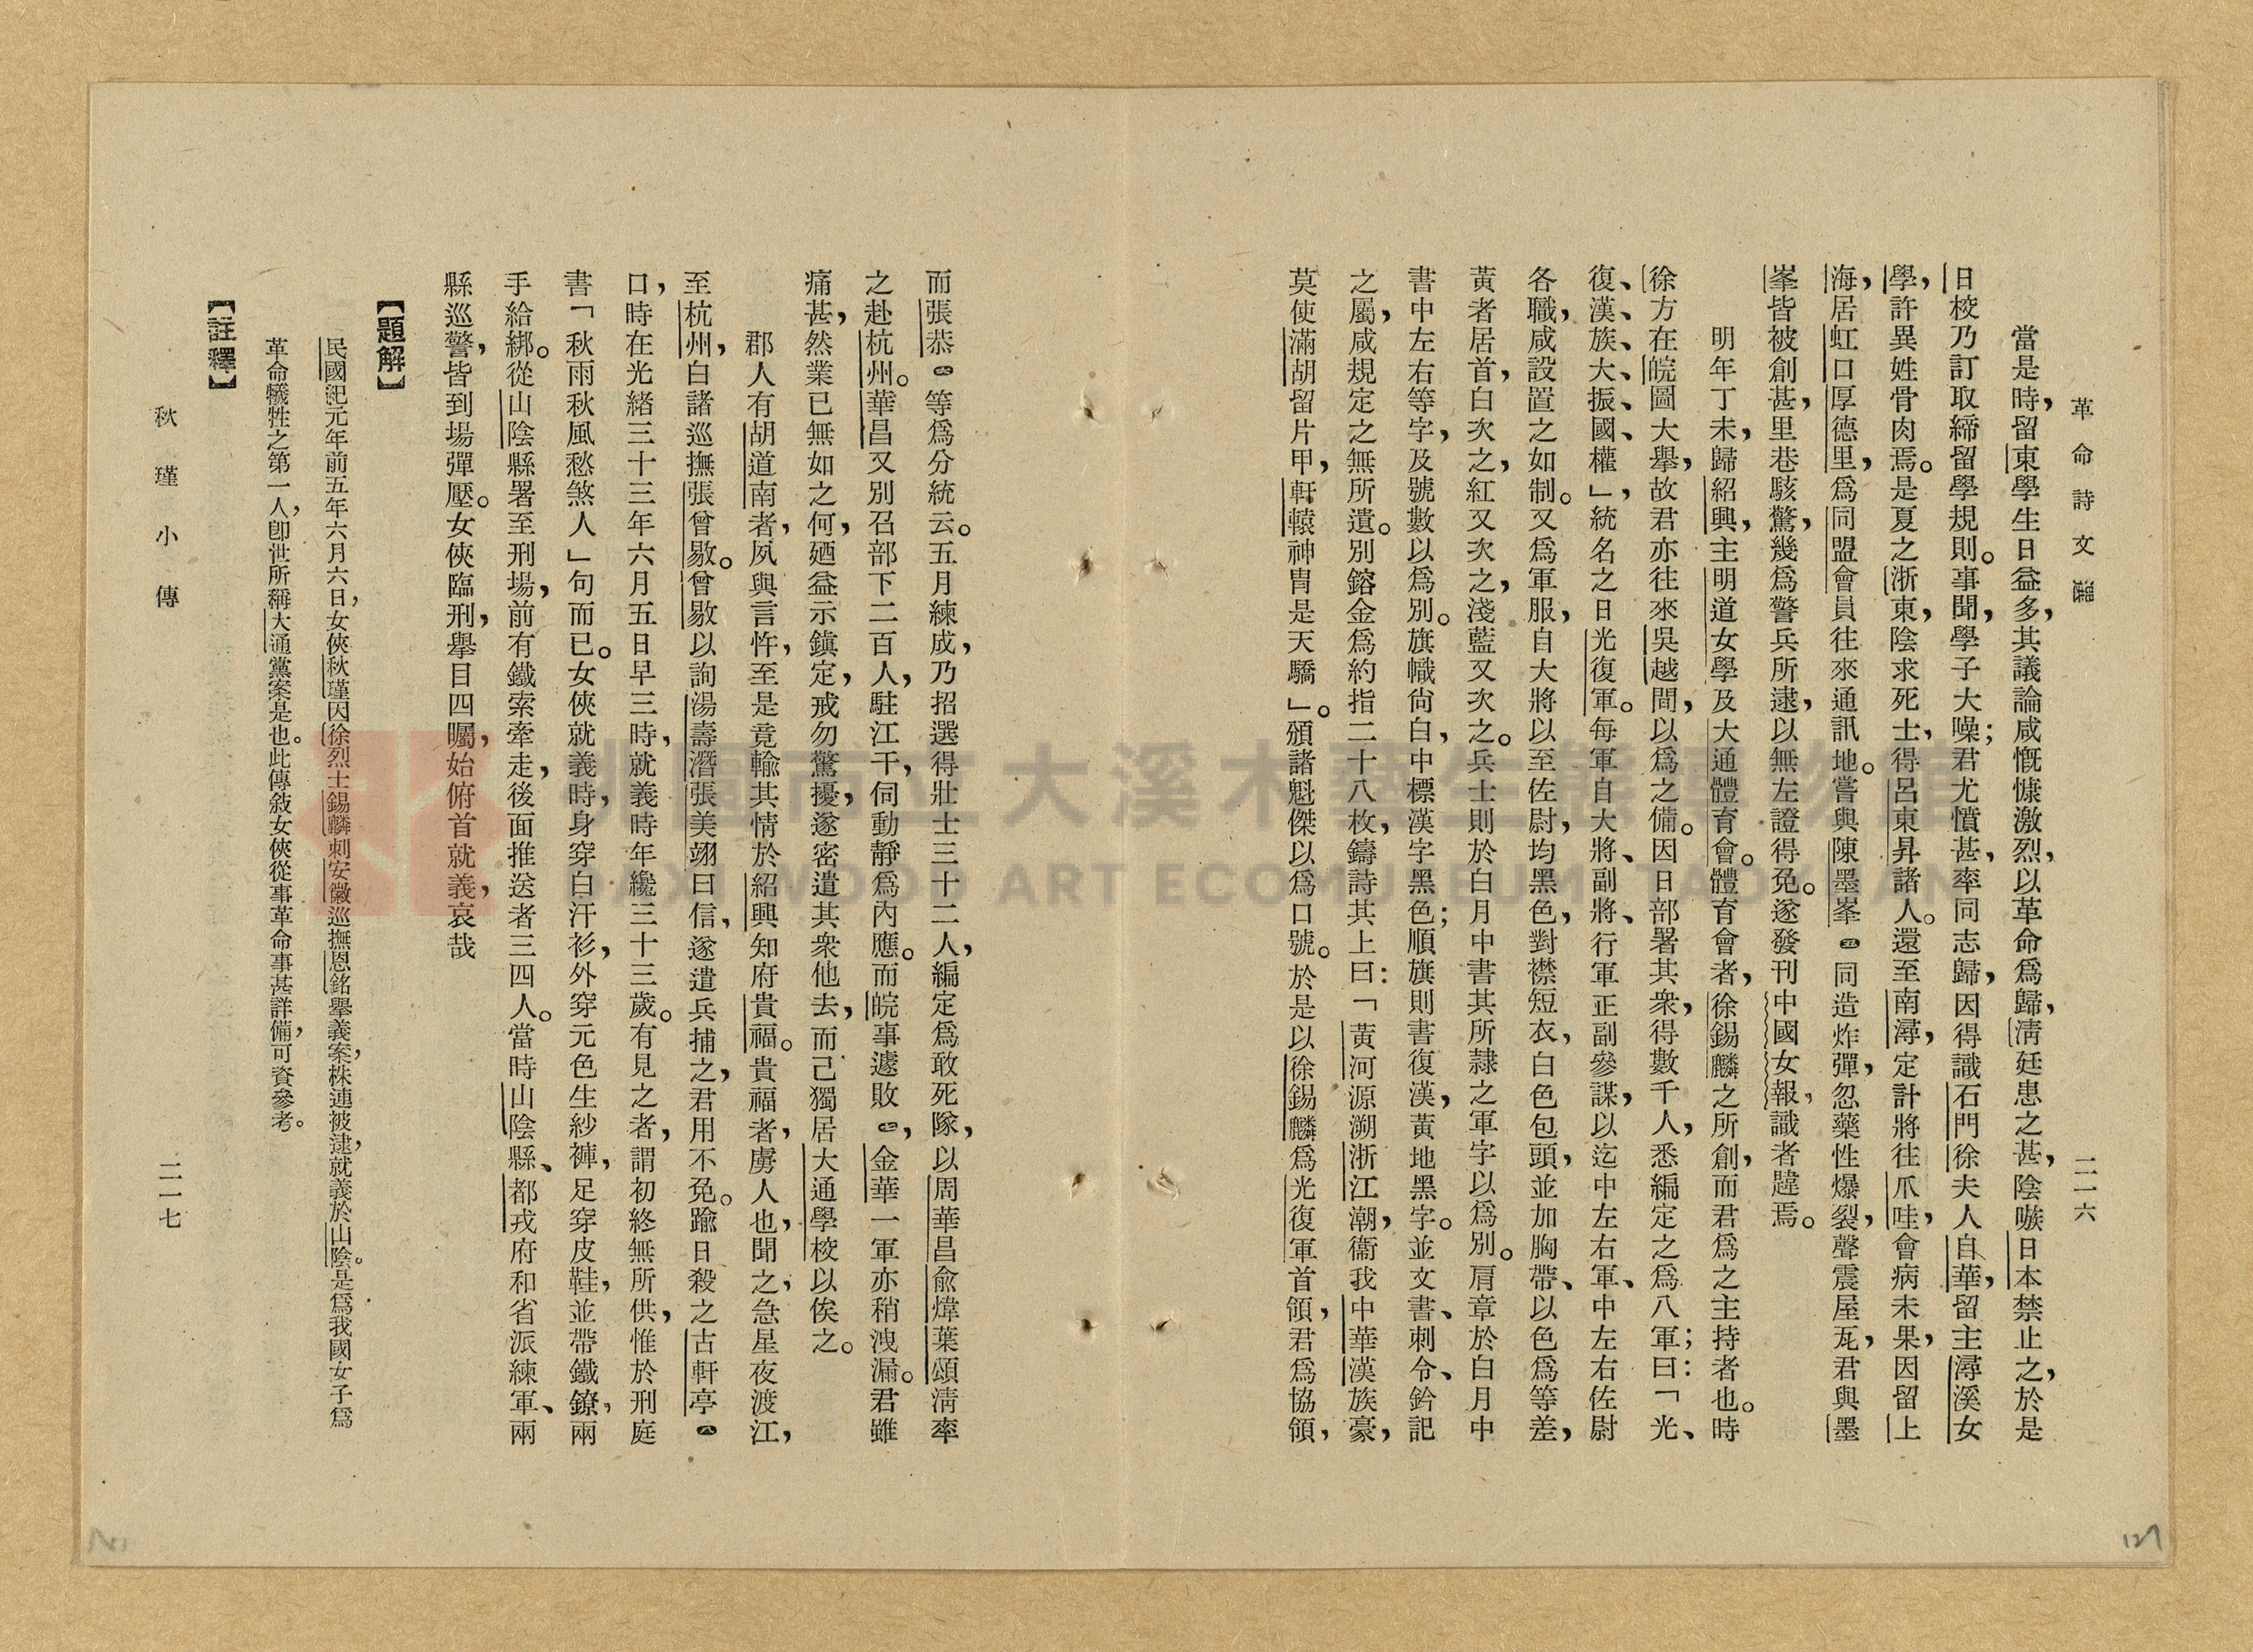 革命詩文選
二一六
當是時，留東學生日益多，其議論咸慨慷激烈，以革命爲歸，淸廷患之甚，陰嗾日本禁止之，於是
日校乃訂取締留學規則。事聞，學子大噪；君尤憤甚，率同志歸，因得識石門徐夫人自華，留主潯溪女
學，許異姓骨肉焉。是夏之浙東，陰求死士，得呂東昇諸人。還至南潯，定計將往爪哇，會病未果，因留上
海，居虹口厚德里，爲同盟會員往來通訊地。嘗與陳墨峯㊄同造炸彈，忽藥性爆裂，聲震屋瓦，君與墨
峯皆被創甚，里巷駭驚，幾爲警兵所逮，以無左證得免。遂發刊中國女報，識者韙焉。
明年丁未，歸紹興，主明道女學及大通體育會。體育會者，徐錫麟之所創，而君爲之主持者也。時
徐方在皖圖大舉，故君亦往來吳越間，以爲之備。因日部署其衆，得數千人，悉編定之爲八軍；曰：「光、
復、漢、族、大、振、國、權」，統名之日光復軍。每軍自大將、副將、行軍正副參謀，以迄中左右軍、中左右佐尉
各職，咸設置之如制。又爲軍服，自大將以至佐尉，均黑色，對襟短衣，白色包頭，並加胸帶、以色爲等差，
黃者居首，白次之，紅又次之，淺藍又次之。兵士則於白月中書其所隸之軍字以爲別。肩章於白月中
書中左右等字，及號數以爲別。旗幟尙白，中標漢字黑色；順旗則書復漢，黃地黑字。並文書、刺令、鈐記
之屬，咸規定之無所遺。別鎔金爲約指二十八枚，鑄詩其上曰：「黃河源溯浙江潮，衞我中華漢族豪，
莫使滿胡留片甲，軒轅神冑是天驕」。頒諸魁傑以爲口號。於是以徐錫麟爲光復軍首領，君爲協領，
而張恭㊅等爲分統云。五月練成，乃招選得壯士三十二人，編定爲敢死隊，以周華昌俞煒葉頌淸率
之赴杭州。華昌又別召部下二百人，駐江干，伺動靜爲內應。而皖事遽敗㊆，金華一軍亦稍洩漏。君雖
痛甚，然業已無如之何，廼益示鎭定，戒勿驚擾，遂密遣其衆他去，而己獨居大通學校以俟之。
郡人有胡道南者，夙與言忤，至是竟輸其情於紹興知府貴福。貴福者，虜人也，聞之，急星夜渡江，
至杭州，白諸巡撫張曾敭。曾敭以詢湯壽潛張美翊曰信，遂遣兵捕之，君用不免。踰日殺之古軒亭㊇
口，時在光緒三十三年六月五日早三時，就義時年纔三十三歲。有見之者，謂初終無所供，惟於刑庭
書「秋雨秋風愁煞人」句而已。女俠就義時，身穿白汗衫，外穿元色生紗褲，足穿皮鞋，並帶鐵鐐，兩
手給綁。從山陰縣署至刑場，前有鐵索牽走，後面推送者三四人。當時山陰縣、都戎府和省派練軍、兩
縣巡警，皆到場彈壓。女俠臨刑，舉目四矚，始俯首就義，哀哉
【題解】
民國紀元年前五年六月六日，女俠秋瑾因徐烈士錫麟刺安徽巡撫恩銘舉義案，株連被逮，就義於山陰。是爲我國女子爲
革命犧牲之第一人，卽世所稱大通黨案是也。此傳敍女俠從事革命事甚詳備，可資參考。
【註釋】
秋瑾小傳
二一七
127
桃園市立大溪木藝生態博物館
DAXI WOOD ART ECOMUSEUM, TAOYUAN